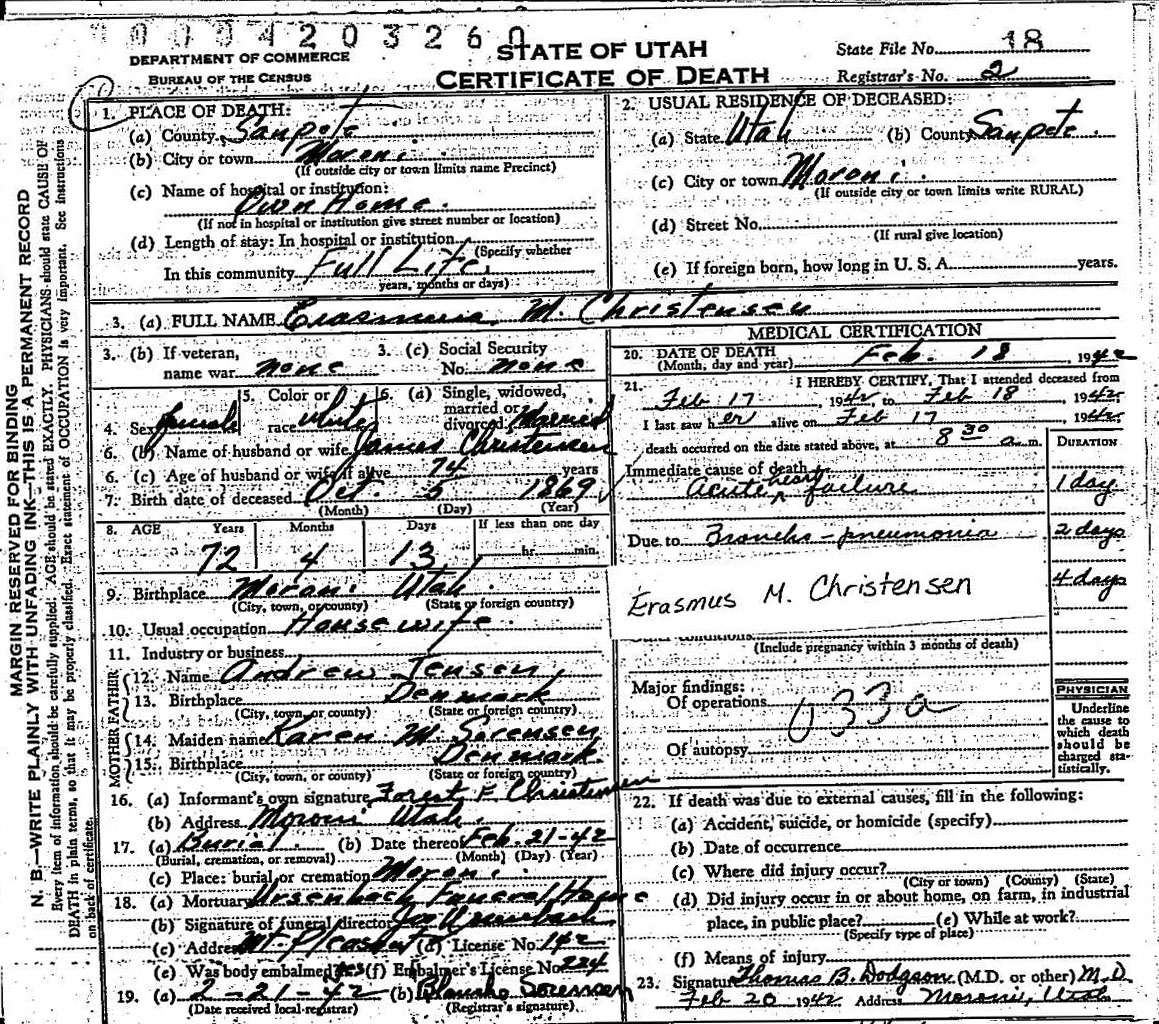 0004203260
DEPARTMENT OF COMMERCE
BUREAU OF THE CENSUS
STATE OF UTAH
CERTIFICATE OF DEATH
State File No. 18
Registrar's No. 2
MARGIN RESERVED FOR BINDING
N. B.—WRITE PLAINLY WITH UNFADING INK—THIS IS A PERMANENT RECORD
Every item of information should be carefully supplied. AGE should be stated EXACTLY. PHYSICIANS should state CAUSE OF
DEATH in plain terms, so that it may be properly classified. Exact statement of OCCUPATION is very important. See instructions
on back of certificate.
1. PLACE OF DEATH:
(a) County Sanpete
(b) City or town Moroni
(If outside city or town limits name Precinct)
(c) Name of hospital or institution:
Own Home.
(If not in hospital or institution give street number or location)
(d) Length of stay: In hospital or institution
(Specify whether
In this community Full Life
years, months or days)
2. USUAL RESIDENCE OF DECEASED:
(a) State Utah (b) County Sanpete.
(c) City or town Moroni.
(If outside city or town limits write RURAL)
(d) Street No.
(If rural give location)
(e) If foreign born, how long in U. S. A. years.
3. (a) FULL NAME M. Christensen
3. (b) If veteran, 3. (c) Social Security
name war none No. none
4. Sex female 5. Color or race white 6. (a) Single, widowed, married or divorced Married
6. (b) Name of husband or wife James Christensen
6. (c) Age of husband or wife if alive 74 years
7. Birth date of deceased Oct. 5 1869
(Month) (Day) (Year)
8. AGE Years Months Days If less than one day
72 4 13 hr. min.
9. Birthplace Moroni Utah
(City, town, or county) (State or foreign country)
10. Usual occupation Housewife
11. Industry or business
FATHER
12. Name Andrew Jensen
13. Birthplace Denmark
(City, town, or county) (State or foreign country)
MOTHER
14. Maiden name Karen M Sorensen
15. Birthplace Denmark
(City, town, or county) (State or foreign country)
16. (a) Informant's own signature Forest F. Christensen
(b) Address Moroni Utah.
17. (a) Burial (b) Date thereof Feb. 21-42
(Burial, cremation, or removal) (Month) (Day) (Year)
(c) Place: burial or cremation Moroni
18. (a) Mortuary Ursenbach Funeral Home
(b) Signature of funeral director
(c) Address Mt. Pleasant (d) License No. 142
(e) Was body embalmed yes (f) Embalmer's License No. 224
19. (a) 2-21-42 (b) Sorensen
(Date received local registrar) (Registrar's signature)
MEDICAL CERTIFICATION
20. DATE OF DEATH Feb. 18, 1942
(Month, day and year)
21. I HEREBY CERTIFY, That I attended deceased from
Feb 17, 1942, to Feb 18, 1942
I last saw her alive on Feb 17, 1942
death occurred on the date stated above, at 8 30 a m.
DURATION
Immediate cause of death
Acute heart failure 1 day
Due to Broncho-pneumonia 2 days
4 days
Erasmus M. Christensen
(Include pregnancy within 3 months of death)
Major findings:
Of operations
033a
Of autopsy
PHYSICIAN
Underline
the cause to
which death
should be
charged sta-
tistically.
22. If death was due to external causes, fill in the following:
(a) Accident, suicide, or homicide (specify)
(b) Date of occurrence
(c) Where did injury occur?
(City or town) (County) (State)
(d) Did injury occur in or about home, on farm, in industrial
place, in public place? (e) While at work?
(Specify type of place)
(f) Means of injury
23. Signature Thomas B. Dodgson (M.D. or other) M.D.
Feb 20 1942 Address Moroni, Utah